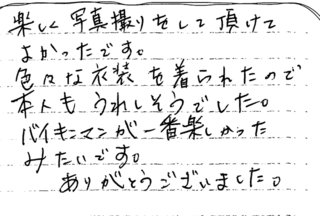 楽しく写真撮りをして頂けて
よかったです。
色々な衣装を着られたので
本人もうれしそうでした。
バイキンマンが一番楽しかった
みたいです。
ありがとうございました。